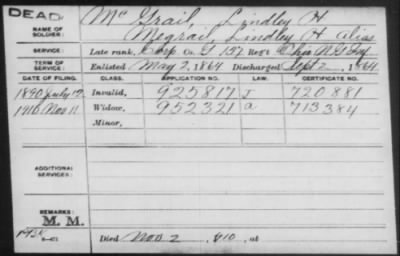 DEAD
NAME OF SOLDIER: McGrail, Lindley H
Megrail, Lindley H alias
SERVICE: Late rank, Corp Co. G 157 Reg't Ohio N G Inf
TERM OF SERVICE: Enlisted May 2, 1864 Discharged Sept 2, 1864
DATE OF FILING. CLASS. APPLICATION NO. LAW. CERTIFICATE NO.
1890 July 17 Invalid, 925817 J 720881
1910 Nov 11 Widow, 952321 a 713384
Minor,
ADDITIONAL SERVICES:
REMARKS:
M. M.
Died Nov 2, 910, at